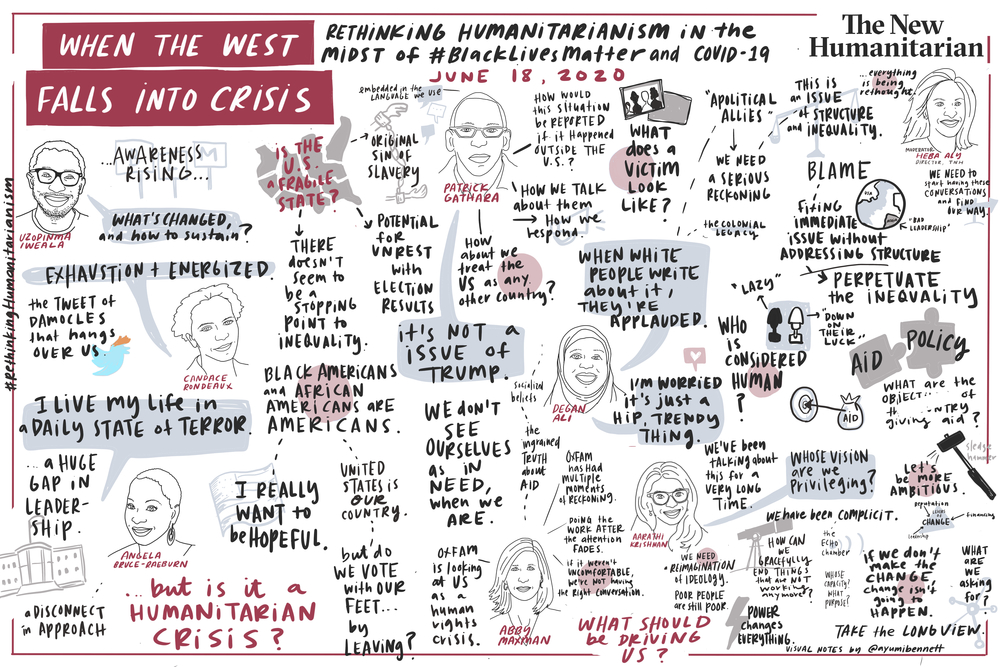 WHEN THE WEST
FALLS INTO CRISIS
RETHINKING HUMANITARIANISM in the
MIDST of #BlackLivesMatter and COVID-19
JUNE 18, 2020
The New
Humanitarian
#RethinkingHumanitarianism
UZODINMA
IWEALA
...AWARENESS
RISING...
WHAT'S CHANGED,
and how to sustain?
EXHAUSTION + ENERGIZED.
the TWEET of
DAMOCLES
that hangs
OVER US.
CANDACE
RONDEAUX
I LIVE my LIFE in
a DAILY STATE of TERROR.
...a HUGE
GAP in
LEADER-
SHIP.
ANGELA
BRUCE-RAEBURN
a DISCONNECT
in APPROACH
...but is it a
HUMANITARIAN
CRISIS?
IS THE
U.S.
a FRAGILE
STATE?
ORIGINAL
SIN of
SLAVERY
embedded in the
LANGUAGE we use
THERE
doesn't
SEEM to
be a
STOPPING
POINT to
INEQUALITY.
POTENTIAL
for
UNREST
with
ELECTION
RESULTS
BLACK AMERICANS
and AFRICAN
AMERICANS ARE
AMERICANS.
I REALLY
WANT to
be HOPEFUL.
UNITED
STATES is
OUR
COUNTRY.
but do
WE VOTE
with OUR
FEET...
by
LEAVING?
PATRICK
GATHARA
HOW WOULD
this SITUATION
be REPORTED
if it HAPPENED
OUTSIDE THE
U.S.?
HOW WE TALK
about them
HOW we
respond.
HOW
about we
treat the
US as any
other country?
it's NOT a
ISSUE of
TRUMP.
WE DON'T
SEE
OURSELVES
as IN
NEED,
when we
ARE.
OXFAM
is looking
at US
as a
human
rights
crisis.
ABBY
MAXMAN
WHAT
does a
VICTIM
LOOK
LIKE?
"APOLITICAL
ALLIES"
WE NEED
a SERIOUS
RECKONING
the COLONIAL
LEGACY
WHEN WHITE
PEOPLE WRITE
about it,
THEY'RE
APPLAUDED.
DEGAN
ALI
I'M WORRIED
it's JUST a
HIP, TRENDY
THING.
socialized
beliefs
the
ingrained
TRUTH
about
AID
OXFAM
has HAD
MULTIPLE
moments
of RECKONING.
DOING the
WORK AFTER
the ATTENTION
FADES.
if it weren't
UNCOMFORTABLE,
we're NOT having
the Right CONVERSATION.
WHAT SHOULD
be DRIVING
US?
AARATHI
KRISHNAN
WE'VE BEEN
TALKING about
this for
VERY LONG
TIME.
WE NEED
a REIMAGINATION
of IDEOLOGY.
POOR PEOPLE
are still POOR.
POWER
changes
EVERYTHING.
THIS is
an ISSUE
of STRUCTURE
and INEQUALITY.
...everything
is being
rethought.
MODERATOR
HEBA ALY
DIRECTOR, TNH
WE NEED to
start having these
CONVERSATIONS
and FIND
OUR WAY.
BLAME
"BAD
LEADERSHIP"
FIXING
IMMEDIATE
ISSUE without
ADDRESSING STRUCTURE
PERPETUATE
the INEQUALITY
"LAZY"
"DOWN
ON
THEIR
LUCK"
WHO
IS
CONSIDERED
HUMAN
?
AID
POLICY
AID
WHAT ARE the
giving aid?
WHOSE VISION
are we
PRIVILEGING?
LET'S
be MORE
AMBITIOUS.
reputation
CHANGE
financing
learning
WE have been COMPLICIT.
HOW CAN
WE
GRACEFULLY
END THINGS
that are NOT
working
anymore?
the
ECHO
chamber
WHOSE CAPACITY?
WHAT
PURPOSE?
if WE DON'T
make the
CHANGE,
CHANGE isn't
going to
HAPPEN.
WHAT
ARE
WE
asking
for?
TAKE the LONG VIEW.
VISUAL NOTES by @ayumibennett